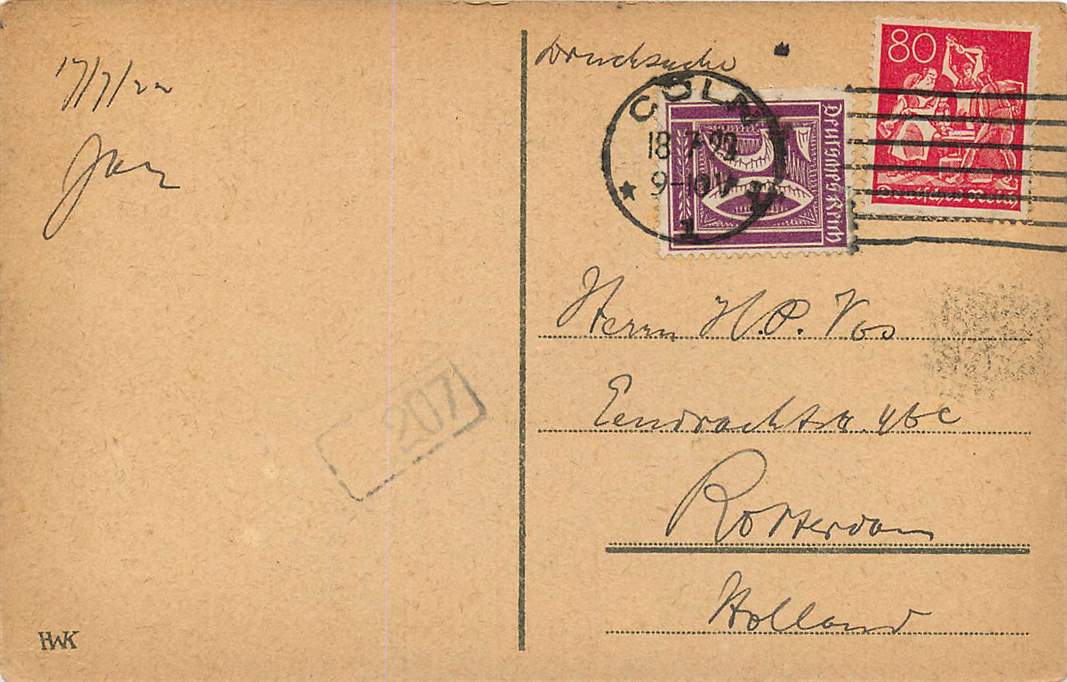 17/7/22
Jan
Drucksache
80
Deutsches Reich
Deutsches Reich
CÖLN
18.7.22
9-10 V
★ 1
Herrn H.P. Vos
Eendrachtstr. 46c
Rotterdam
Holland
207
HWK